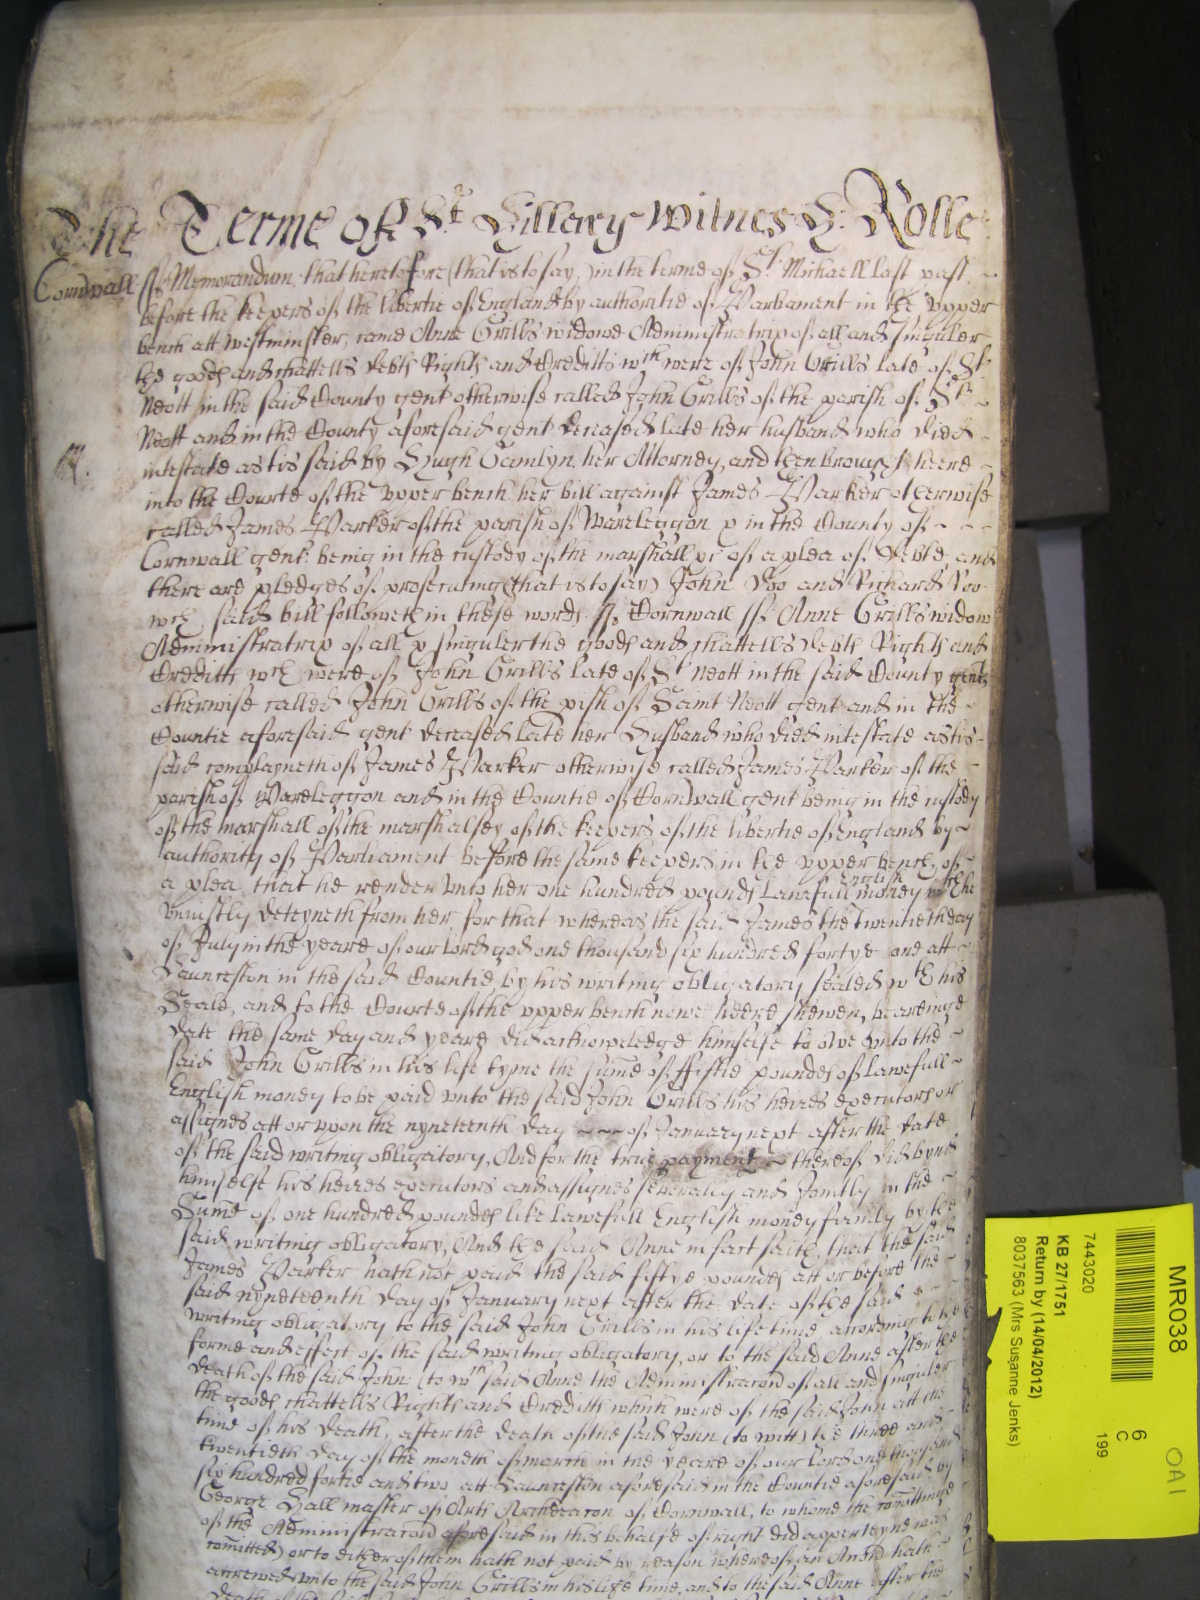 The Terme of St Hillary Witnes H: Rolle
Cornwall ss Memorandum that heretofore (that is to say) in the terme of St Michaell last past
before the keepers of the libertie of England by authoritie of Parliament in the vpper
bench att westminster, came Anne Grills widowe Administratrix of all and singuler
the goods and chattells debts Rights and Creditts wch were of John Grills late of St
Neott in the said County gent otherwise called John Grills of the parish of St
Neott and in the County aforesaid gent deceased late her husband who died
intestate as tis said by Hugh Tamlyn her Attorney, and then brought heere
into the Courte of the vpper bench her bill against James Parker otherwise
called James Parker of the parish of Wareleggon in the County of
Cornwall gent being in the custody of the marshall &c of a plea of Debte and
there are pledges of prosecuting (that is to say) John Doo and Richard Roo
wch said bill followeth in these words ss, Cornwall ss Anne Grills widow
Administratrix of all & singuler the goods and chattells debts Rights and
Creditts wch were of John Grills late of St Neott in the said County gent
otherwise called John Grills of the pish of Saint Neott gent and in the
Countie aforesaid gent deceased late her Husband who died intestate as tis
said complayneth of James Parker otherwise called James Parker of the
parish of Wareleggon and in the Countie of Cornwall gent being in the custody
of the marshall of the marshalsey of the keepers of the libertie of England by
authority of Parliament before the same keepers in the vpper bench, of
a plea that he render vnto her one hundred pounds Lawefull English money wch he
vniustly deteyneth from her for that whereas the said James the twentieth day
of July in the yeare of our lord god one thousand six hundred fortye and att
Launceston in the said Countie, by his writing obligatory sealed wth his
Seale, and to the Courte of the vpper bench nowe heere shewen, beareinge
date the same day and yeare did acknowledge himselfe to owe vnto the
said John Grills in his life tyme the sume of ffiftie pounds of Lawefull
English money to be paid vnto the said John Grills his heires executors or
assignes att or vpon the nyneteenth day of January next after the date
of the said writing obligatory, And for the true payment thereof did bynd
himselfe his heires executors and assignes severally and Joyntly in the
Sume of one hundred pounds like Lawefull English money firmly by the
said writing obligatory, And the said Anne in fact saith, that the said
James Parker hath not paid the said fiftye pounds att or before the
said nyneteenth day of January next after the date of the said
writing obligatory to the said John Grills in his life time according to the
forme and effect of the said writing obligatory, or to the said Anne after the
death of the said John (to wch said Anne the Administracon of all and singuler
the goods chattells Rights and Creditts which were of the said John att the
time of his death, after the death of the said John (to witt) the three and
twentieth day of the moneth of march in the yeare of our Lord one thousand
six hundred fortie and two att Launceston aforesaid in the Countie aforesaid by
George Hall master of Arts Archdeacon of Cornwall, to whome the comittinge
of the Administracon aforesaid in this behalfe of right did apperteyne was
comitted) or to either of them hath not paid by reason whereof an Accon hath
accrewed vnto the said John Grills in his life time, and to the said Anne after the
MR038
6
C
199
OA1
7443020
KB 27/1751
Return by (14/04/2012)
8037563 (Mrs Susanne Jenks)